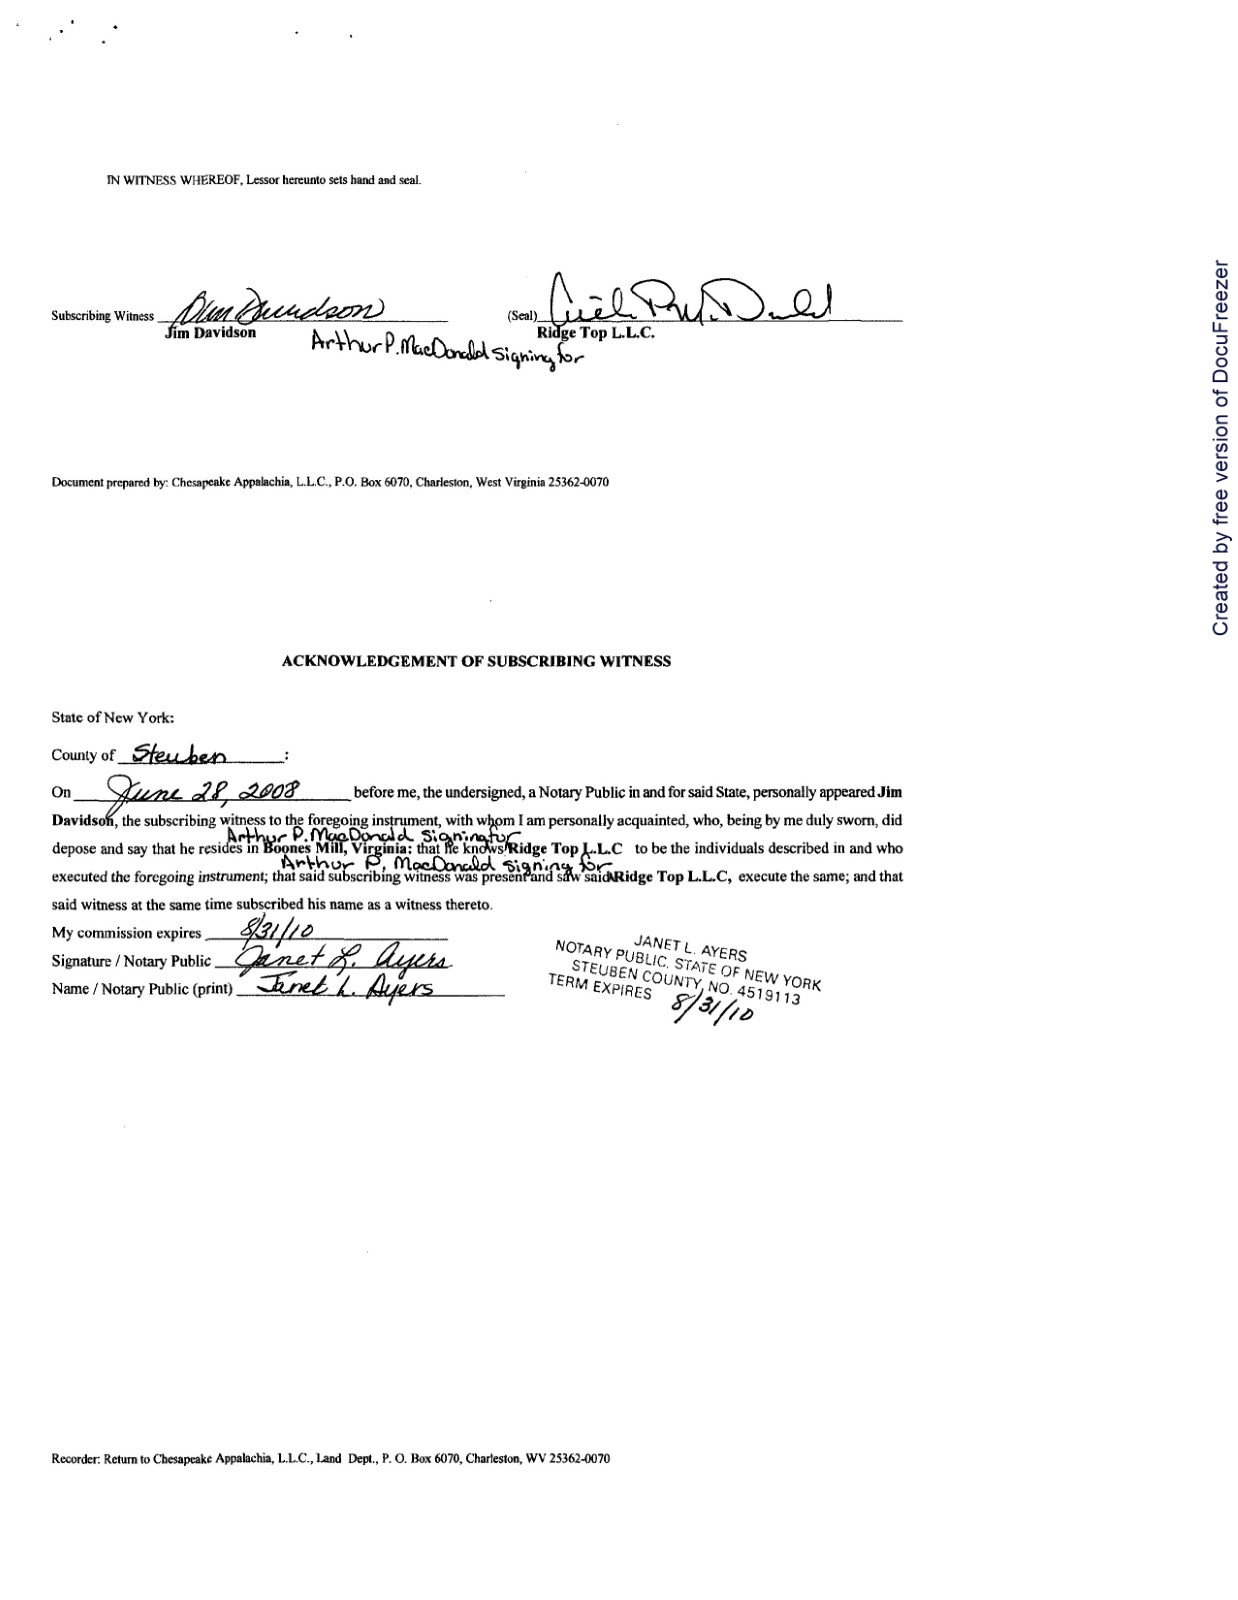 IN WITNESS WHEREOF, Lessor hereunto sets hand and seal.
Subscribing Witness Jim Davidson (Seal)
Jim Davidson Ridge Top L.L.C.
Arthur P. MacDonald signing for
Document prepared by: Chesapeake Appalachia, L.L.C., P.O. Box 6070, Charleston, West Virginia 25362-0070
ACKNOWLEDGEMENT OF SUBSCRIBING WITNESS
State of New York:
County of Steuben :
On June 28, 2008 before me, the undersigned, a Notary Public in and for said State, personally appeared Jim
Davidson, the subscribing witness to the foregoing instrument, with whom I am personally acquainted, who, being by me duly sworn, did
Arthur P. MacDonald signing for
depose and say that he resides in Boones Mill, Virginia: that he knows Ridge Top L.L.C to be the individuals described in and who
Arthur P. MacDonald signing for
executed the foregoing instrument; that said subscribing witness was present and saw said Ridge Top L.L.C, execute the same; and that
said witness at the same time subscribed his name as a witness thereto.
My commission expires 8/31/10
Signature / Notary Public Janet L. Ayers
Name / Notary Public (print) Janet L. Ayers
JANET L. AYERS
NOTARY PUBLIC, STATE OF NEW YORK
STEUBEN COUNTY, NO. 4519113
TERM EXPIRES 8/31/10
Recorder: Return to Chesapeake Appalachia, L.L.C., Land Dept., P. O. Box 6070, Charleston, WV 25362-0070
Created by free version of DocuFreezer